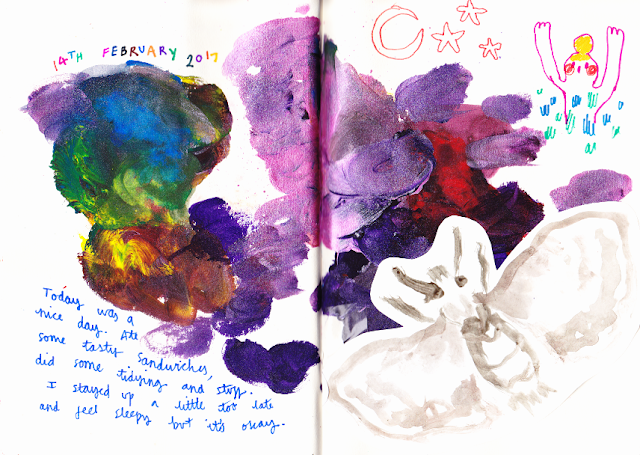 14TH FEBRUARY 2017
Today was a
nice day. Ate
some tasty sandwiches,
did some tidying and stuff.
I stayed up a little too late
and feel sleepy but it's okay.